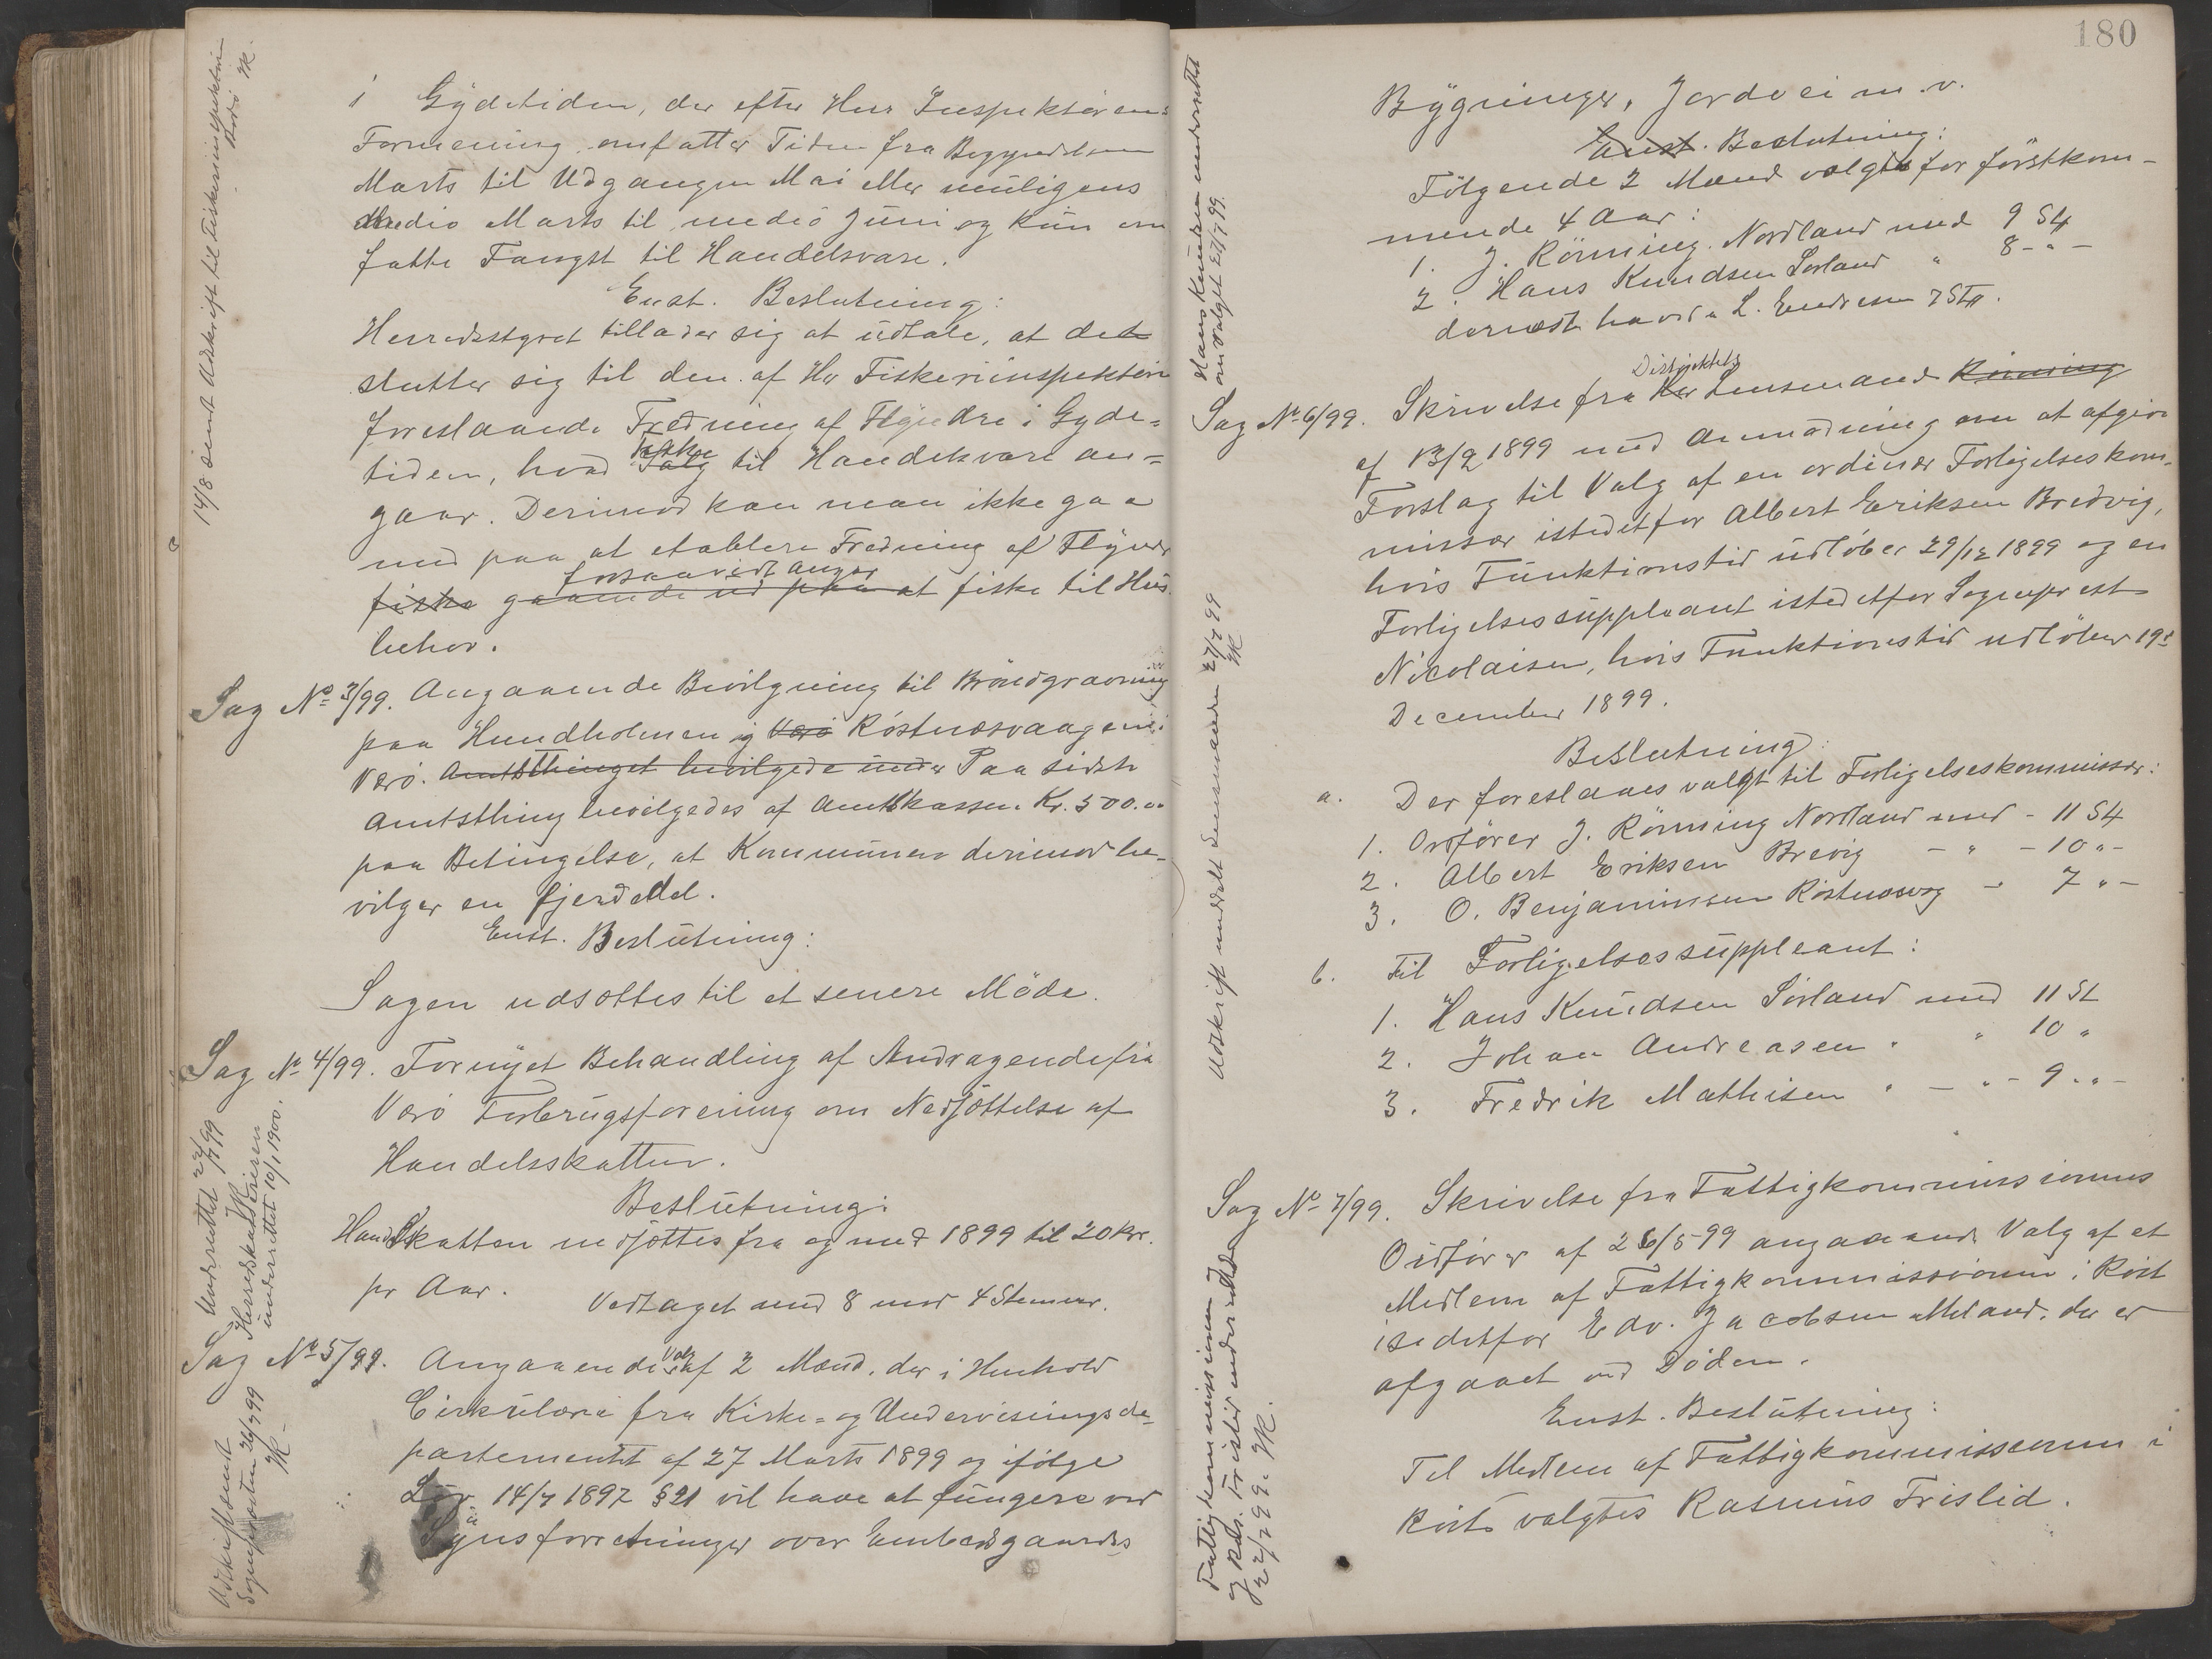 i Gydetiden, der efter Herr Inspektörens
Formening omfatter Tiden fra Begyndelsen
Marts til Udgangen Mai eller muligens
Medio Marts til medio Juni og kun om
fatte Fangst til Handelsvare.
Enst. Beslutning:
Herredsstyret tillader sig at udtale, at det
slutter sig til den af Hr Fiskeriinspektören
foreslaaede Fredning af Flyndre i Gyde=
tiden, hvad Fiske til Handelsvare an=
gaar. Derimod kan man ikke gaa
med paa at etablere Fredning af Flyndr
fiske forsaavidt angaar at fiske til Hus
behov.
Sag No 3/99. Angaaende Bevilgning til Bröndgravning
paa Hundholmen og Værö Röstnesvaagen i
Værö. Amtsthinget bevilgede under Paa sidste
Amtsthing bevilgedes af Amtskassen Kr. 500.00
paa Betingelse, at Kommunen derimod be-
vilger en fjerdedel.
Enst. Beslutning:
Sagen udsættes til et senere Möde.
Sag No 4/99. Fornyet Behandling af Andragende fra
Værö Forbrugsforening om Nedsættelse af
Handelsskatten.
Beslutning:
Handelsskatten nedsættes fra og med 1899 til 20 Kr.
pr Aar.
Vedtaget med 8 mod 4 Stemmer.
Sag No 5/99. Angaaende Valg af 2 Mænd, der i Henhold
Cirkulære fra Kirke- og Undervisningsde-
partementet af 27 Marts 1899 og ifölge
Lov 14/7 1897 § 21 vil have at fungere ved
Synsforretninger over Embedsgaardes
14/8 sendt Udskrift til Fiskeriinspektören
Underrettet 22/7 99
Herredskassereren
underrettet 10/1 1900.
Udskrift sendt
Sogneprosten 26/7 99
180
Bygninger, Jordvei m.v.
Enst. Beslutning:
Fölgende 2 Mænd valgtes for förstkom-
mende 4 Aar:
1. J. Rönning Nordland med 9 St
2. Hans Knudsen Sörland " 8 - " -
dernæst havde L. Endresen 7 St.
Sag No 6/99. Skrivelse fra Distriktets Lensmand Rönning
af 13/2 1899 med Anmodning om at afgive
Forslag til Valg af en ordinær Forligelseskom-
missær istedetfor Albert Eriksen Bredvig,
hvis Funktionstid udlöber 29/12 1899 og en
Forligelsessuppleant istedetfor Sogneprest
Nicolaisen, hvis Funktionstid udlöber 19de
December 1899.
Beslutning:
a. Der foreslaaes valgt til Forligelseskommissær:
1. Ordförer J. Rönning Nordland med - 11 St
2. Albert Eriksen Brevig - " - 10 " -
3. O. Benjaminsen Röstnesvag - 7 " -
b. Til Forligelsessuppleant:
1. Hans Knudsen Sörland med 11 St
2. Johan Andreasen " " 10 "
3. Fredrik Mathisen " - " - 9 " -
Sag No 7/99. Skrivelse fra Fattigkommissionens
Ordförer af 26/5 99 angaaende Valg af et
Medlem af Fattigkommissionen i Röst
istedetfor Edv. Jacobsen, der er
afgaaet ved Döden.
Enst. Beslutning:
Til Medlem af Fattigkommissionen i
Röst valgtes Rasmus Frislid.
Hans Knudsen underrettet
om Valget 27/7 99.
Udskrift meddelt Lensmanden 27/7 99
Fattigkommissionen
og Ras. Frislid underrettet
22/7 99.